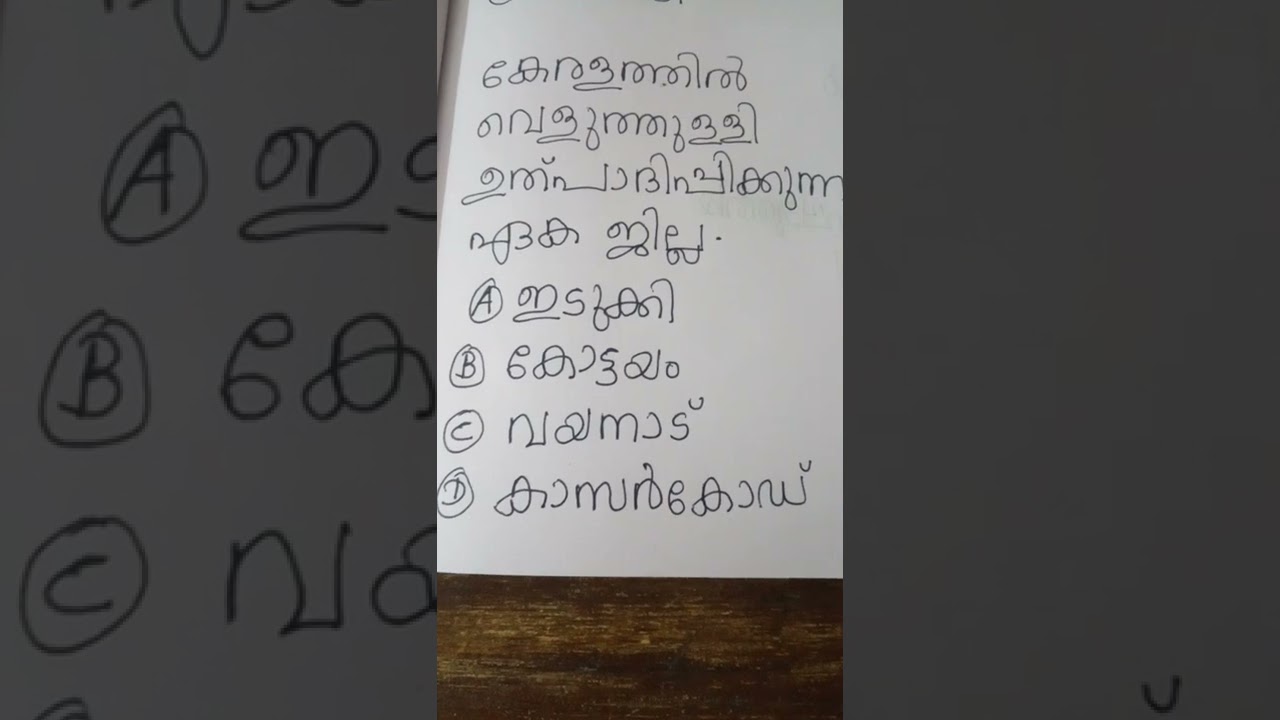 കേരളത്തിൽ
വെളുത്തുള്ളി
ഉത്പാദിപ്പിക്കുന്ന
ഏക ജില്ല.
A ഇടുക്കി
B കോട്ടയം
C വയനാട്
D കാസർകോഡ്